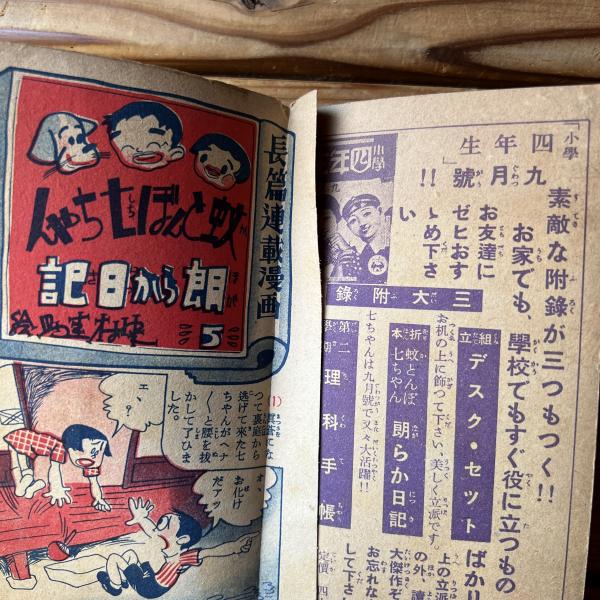 長篇連載漫画
蚊とんぼ七ちゃん
朗らか日記
5
(1)
つて裏庭から
逃げて来た七
ちゃんがヘナ
〱と腰を拔
かして了ひま
した。
エ、?
オ、
お化け
だアツ
「小學
四年生」
九月號!!
素敵な附錄が三つもつく!!
お家でも、學校でもすぐ役に立つもの
ばかり
お友達に
ゼヒおす
ゝめ下さ
い
小學
四年
三大附錄
組立
デスク・セット
お机の上に飾つて下さい、美しく立派です
折本
蚊とんぼ
七ちゃん
朗らか日記
七ちゃんは九月號で又々大活躍!!
第二
學期
理科手帳
上の立派
の外、讀
大傑作ぞ
お忘れな
して下さ
定價 四